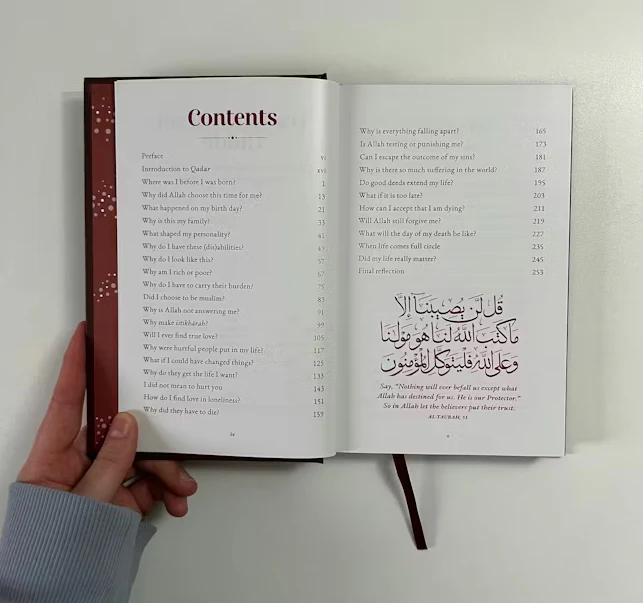 Contents
Preface vi
Introduction to Qadar xvi
Where was I before I was born? 1
Why did Allah choose this time for me? 13
What happened on my birth day? 21
Why is this my family? 33
What shaped my personality? 41
Why do I have these (dis)abilities? 47
Why do I look like this? 57
Why am I rich or poor? 67
Why do I have to carry their burden? 75
Did I choose to be muslim? 83
Why is Allah not answering me? 91
Why make istikhārah? 99
Will I ever find true love? 105
Why were hurtful people put in my life? 117
What if I could have changed things? 125
Why do they get the life I want? 133
I did not mean to hurt you 143
How do I find love in loneliness? 151
Why did they have to die? 159
Why is everything falling apart? 165
Is Allah testing or punishing me? 173
Can I escape the outcome of my sins? 181
Why is there so much suffering in the world? 187
Do good deeds extend my life? 195
What if it is too late? 203
How can I accept that I am dying? 211
Will Allah still forgive me? 219
What will the day of my death be like? 227
When life comes full circle 235
Did my life really matter? 245
Final reflection 253
قُل لَّن يُصِيبَنَآ إِلَّا
مَا كَتَبَ ٱللَّهُ لَنَا هُوَ مَوْلَىٰنَا
وَعَلَى ٱللَّهِ فَلْيَتَوَكَّلِ ٱلْمُؤْمِنُونَ
Say, "Nothing will ever befall us except what
Allah has destined for us. He is our Protector."
So in Allah let the believers put their trust.
AL-TAUBAH, 51